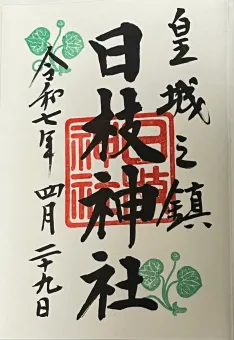 皇城之鎮
日枝神社
令和七年 四月 二十九日
日枝
神社